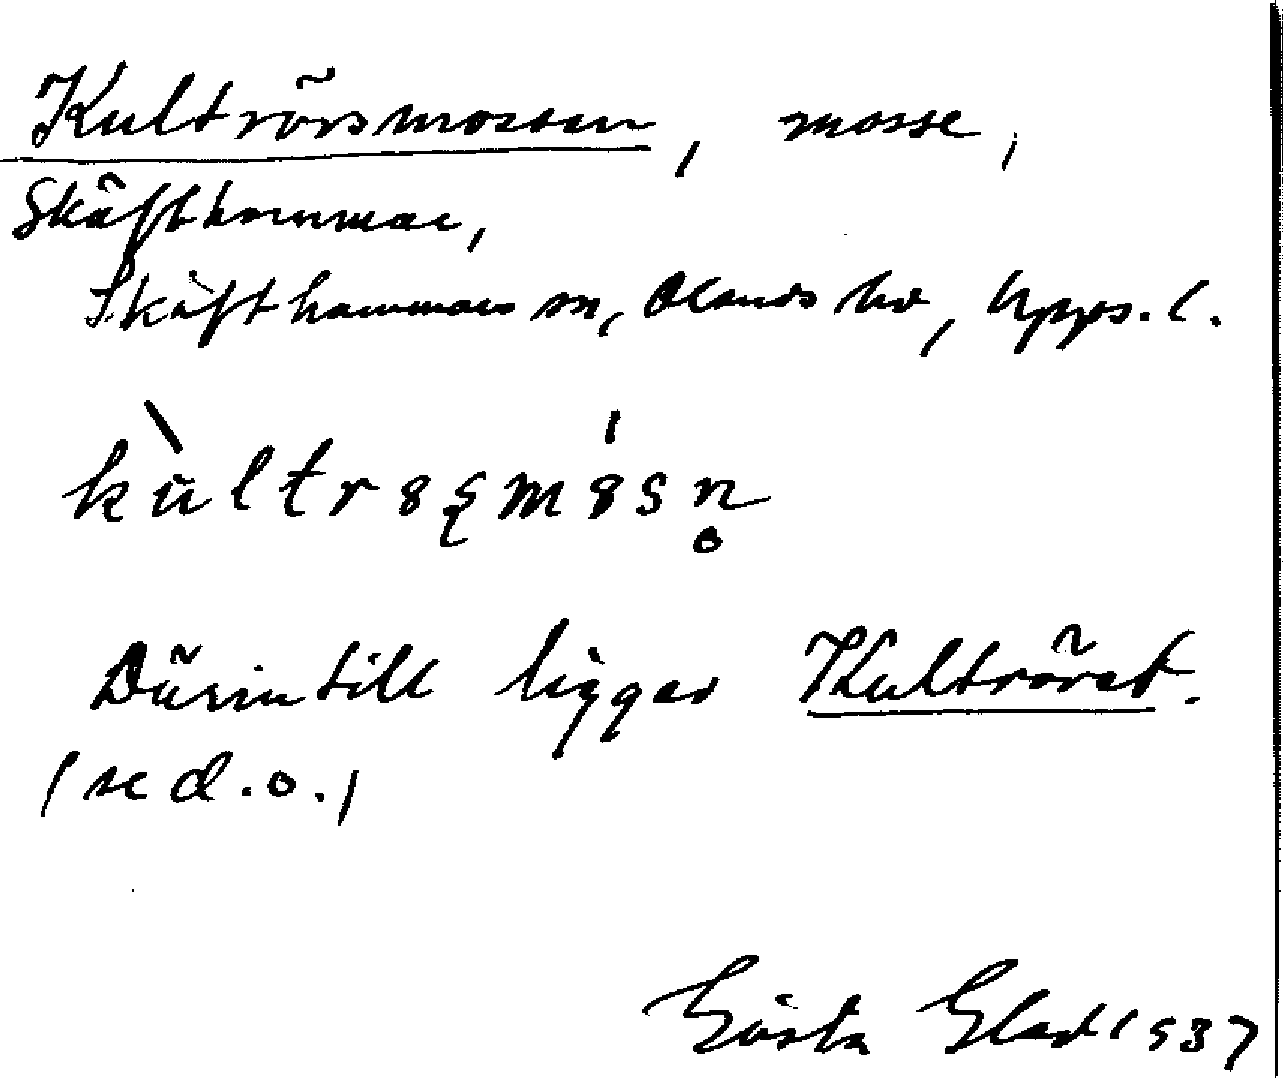 Kultrörsmossen, mosse,
Skäfthammar,
Skäfthammars sn, Olands hd, Upps. l.
kùltrȣʂmȣ́sn̥
Därintill ligger Kultröret.
(se d.o.)
Gösta Glad 1937